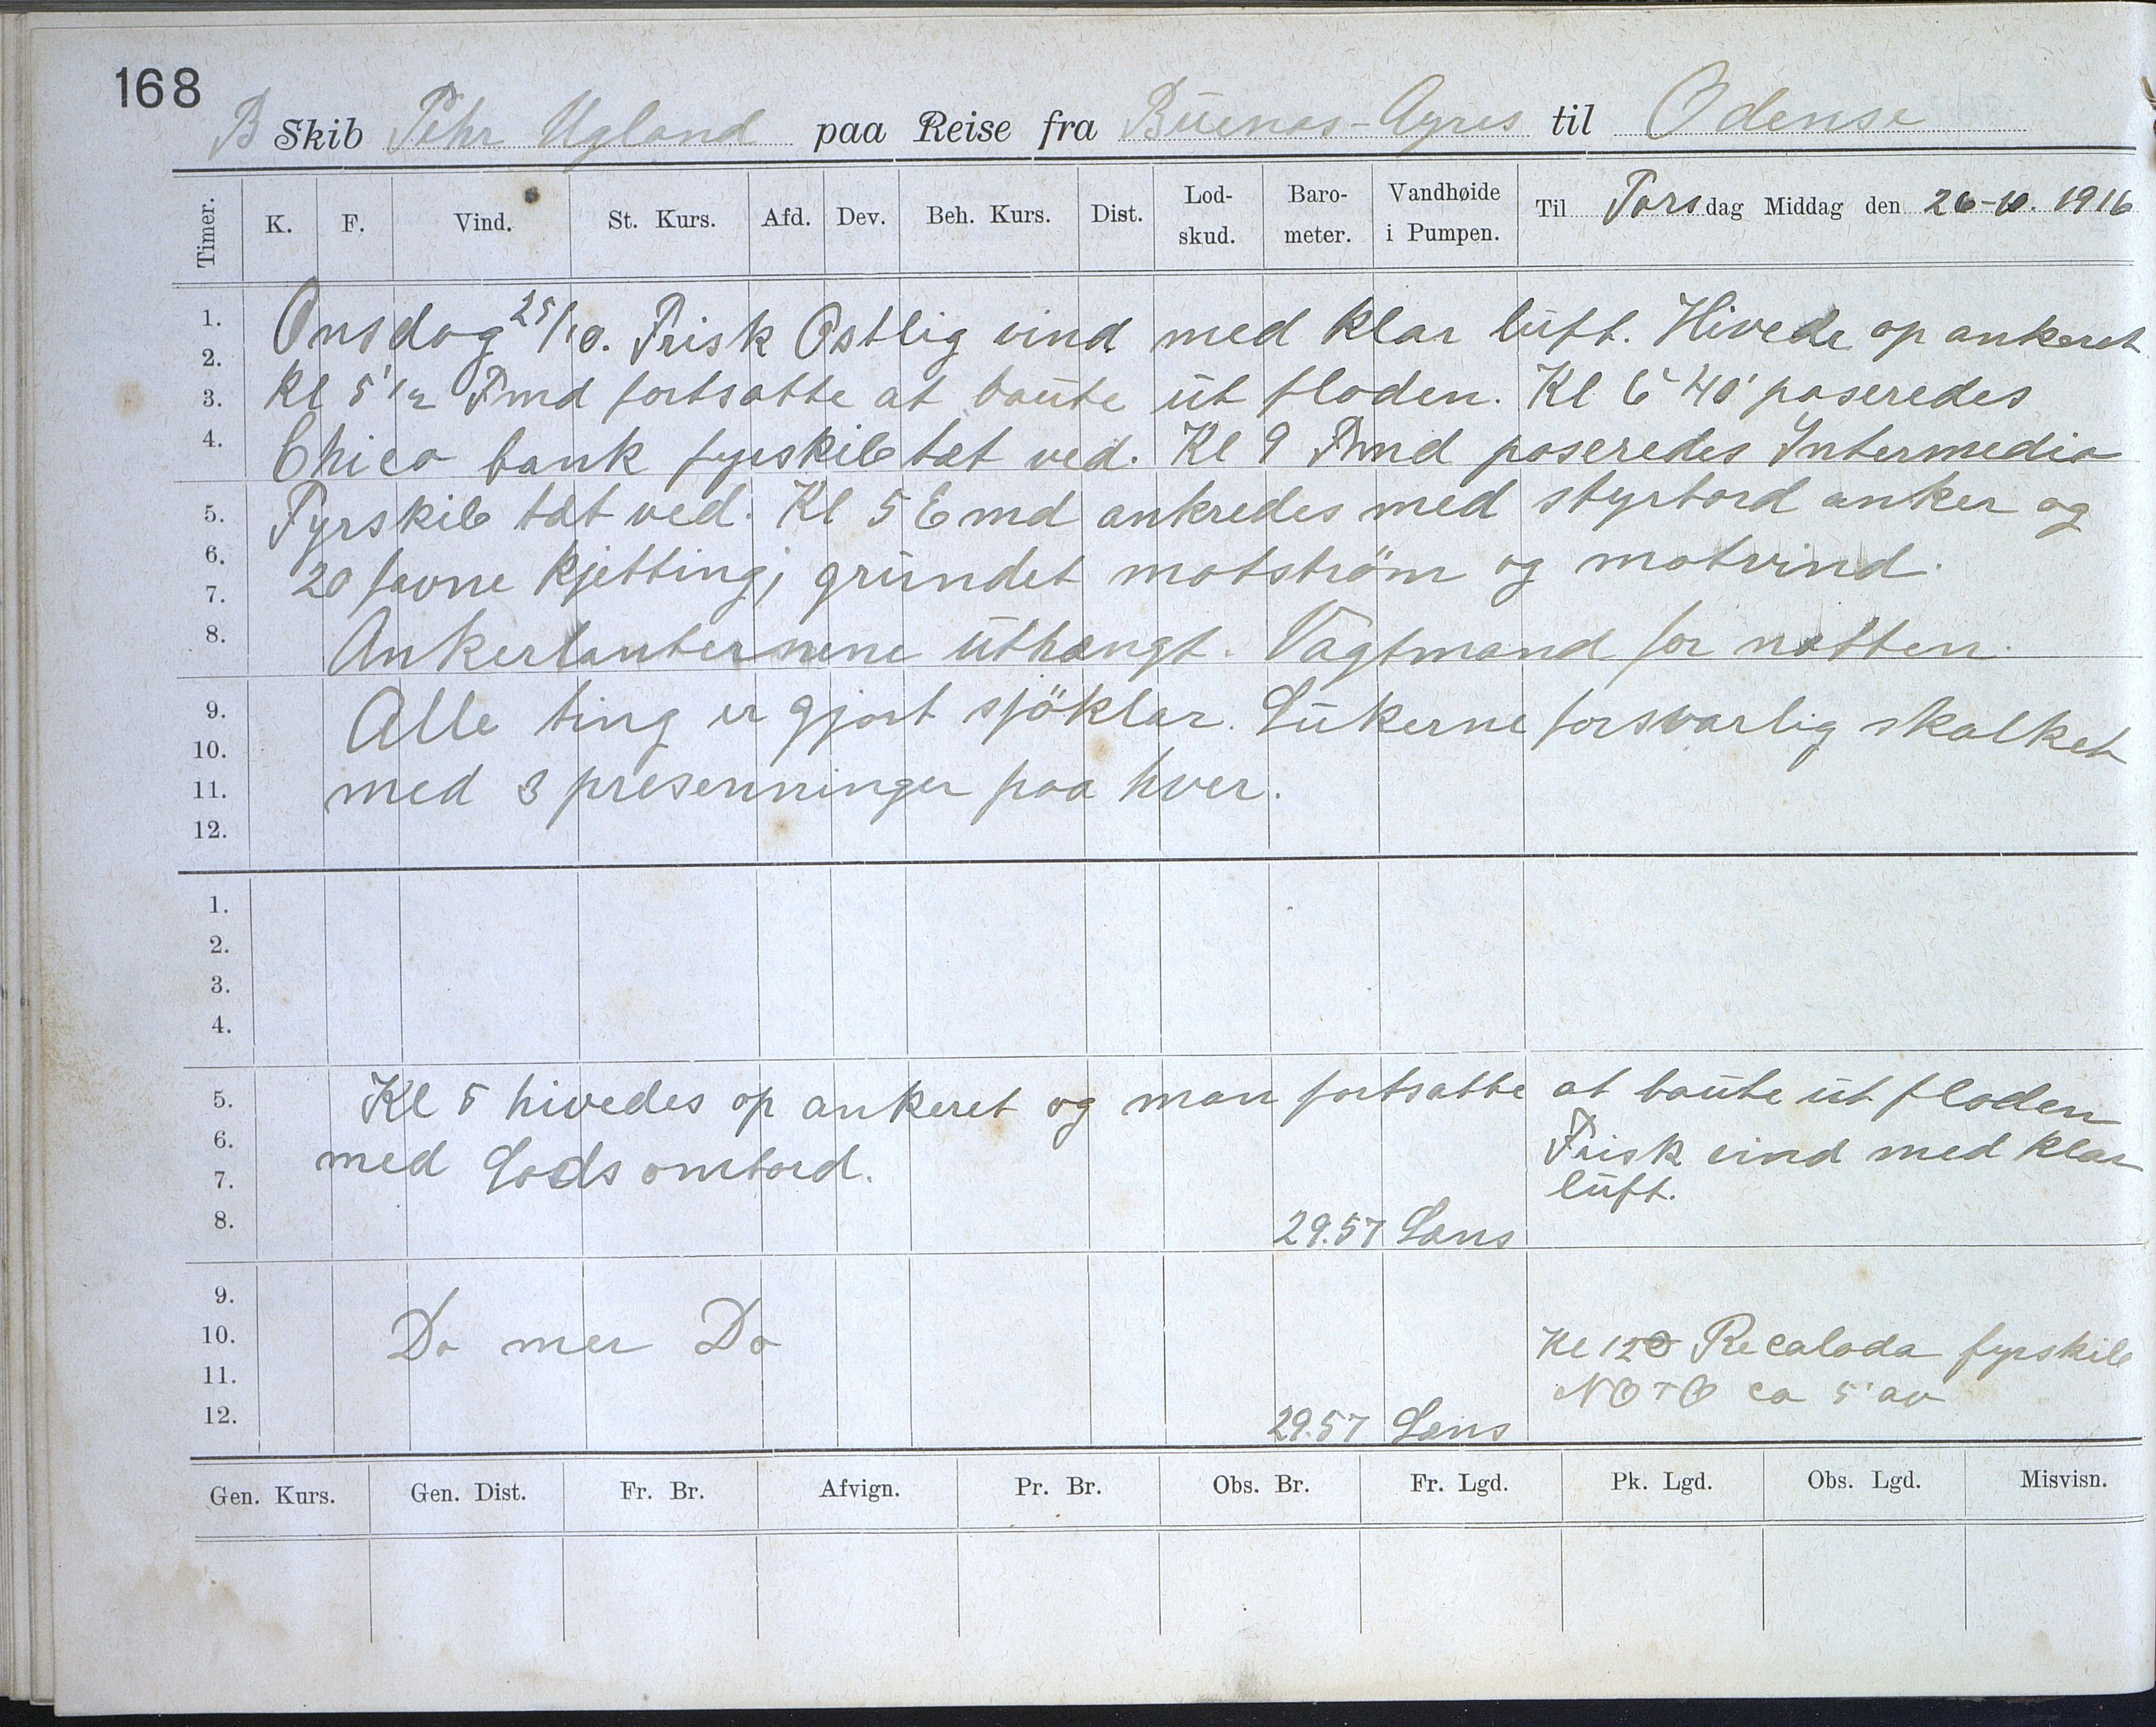 168
B Skib Pehr Ugland paa Reise fra Buenos-Ayres til Odense
Timer. K. F. Vind. St. Kurs. Afd. Dev. Beh. Kurs. Dist. Lod-skud. Baro-meter. Vandhøide i Pumpen. Til Torsdag Middag den 26-10. 1916
1. Onsdag 25/10. Frisk Ostlig vind med klar luft. Hivede op ankeret
2.
3. Kl 5 1/2 Fmd fortsatte at baute ut floden. Kl 6 40' paseredes
4. Chico bank fyrskib tæt ved. Kl 9 Fmd paseredes Intermedia
5. Fyrskib tæt ved. Kl 5 Emd ankredes med styrbord anker og
6. 20 favne kjetting, grundet motström og motvind.
7.
8. Ankerlanternene uthængt. Vagtmand for natten.
9. Alle ting er gjort sjöklar. Lukerne forsvarlig skalket
10.
11. med 3 presenninger paa hver.
12.
1.
2.
3.
4.
5. Kl 5 hivedes op ankeret og man fortsatte at baute ut floden
6. med Lods ombord. Frisk vind med klar
7. luft.
8. 29.57 Læns
9.
10. Do mer Do Kl 12 Recalada fyrskib
11. NOTO ca 5' av
12. 29.57 Læns
Gen. Kurs. Gen. Dist. Fr. Br. Afvign. Pr. Br. Obs. Br. Fr. Lgd. Pk. Lgd. Obs. Lgd. Misvisn.